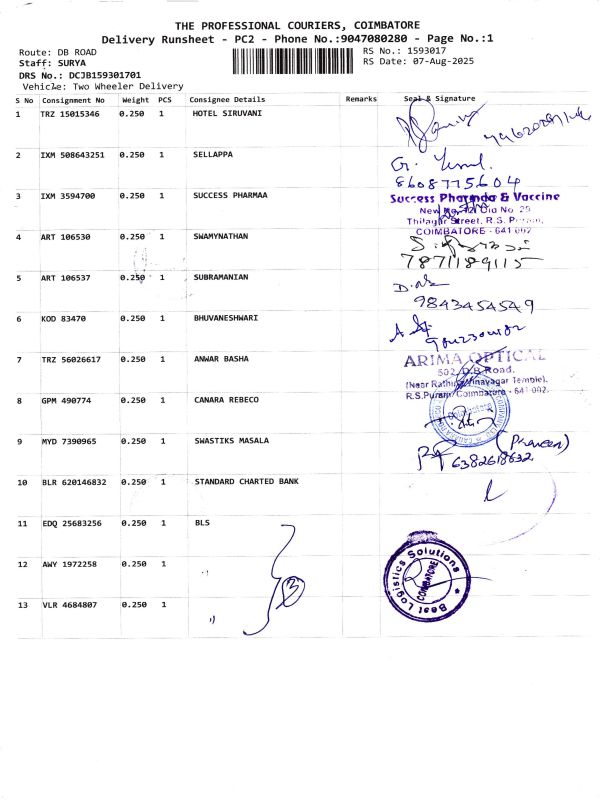 THE PROFESSIONAL COURIERS, COIMBATORE
Delivery Runsheet - PC2 - Phone No.:9047080280 - Page No.:1
Route: DB ROAD RS No.: 1593017
Staff: SURYA RS Date: 07-Aug-2025
DRS No.: DCJB159301701
Vehicle: Two Wheeler Delivery
S No Consignment No Weight PCS Consignee Details Remarks Seal & Signature
1 TRZ 15015346 0.250 1 HOTEL SIRUVANI
2 IXM 508643251 0.250 1 SELLAPPA
8608775604
3 IXM 3594700 0.250 1 SUCCESS PHARMAA
Success Pharmda & Vaccine
New No. 12, Old No. 25
Thilagar Street, R.S. Puram,
COIMBATORE - 641 002
4 ART 106530 0.250 1 SWAMYNATHAN
7871189115
5 ART 106537 0.250 1 SUBRAMANIAN
9843454549
6 KOD 83470 0.250 1 BHUVANESHWARI
7 TRZ 56026617 0.250 1 ANWAR BASHA
ARIMA OPTICAL
502, D.B.Road,
(Near Rathinavinayagar Temple),
R.S.Puram, Coimbatore - 641 002.
8 GPM 490774 0.250 1 CANARA REBECO
9 MYD 7390965 0.250 1 SWASTIKS MASALA
(Praveen)
6382618632
10 BLR 620146832 0.250 1 STANDARD CHARTED BANK
11 EDQ 25683256 0.250 1 BLS
12 AWY 1972258 0.250 1
3
Best Logistics Solutions
COIMBATORE
13 VLR 4684807 0.250 1
"